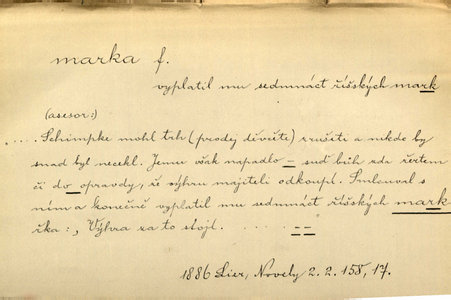 marka f.
vyplatil mu sedmnáct říšských mark
(asesor:)
.... Schimpke mohl trh (prodej děvčete) zrušiti a nikdo by
snad byl necekl. Jemu však napadlo – suď bůh zda žertem
či do opravdy, že výhru majiteli odkoupí. Smlouval s
ním a konečně vyplatil mu sedmnáct říšských mark
řka: „Výhra za to stojí. ..... – –
1886 Lier, Novely 2. 2. 158, 17.